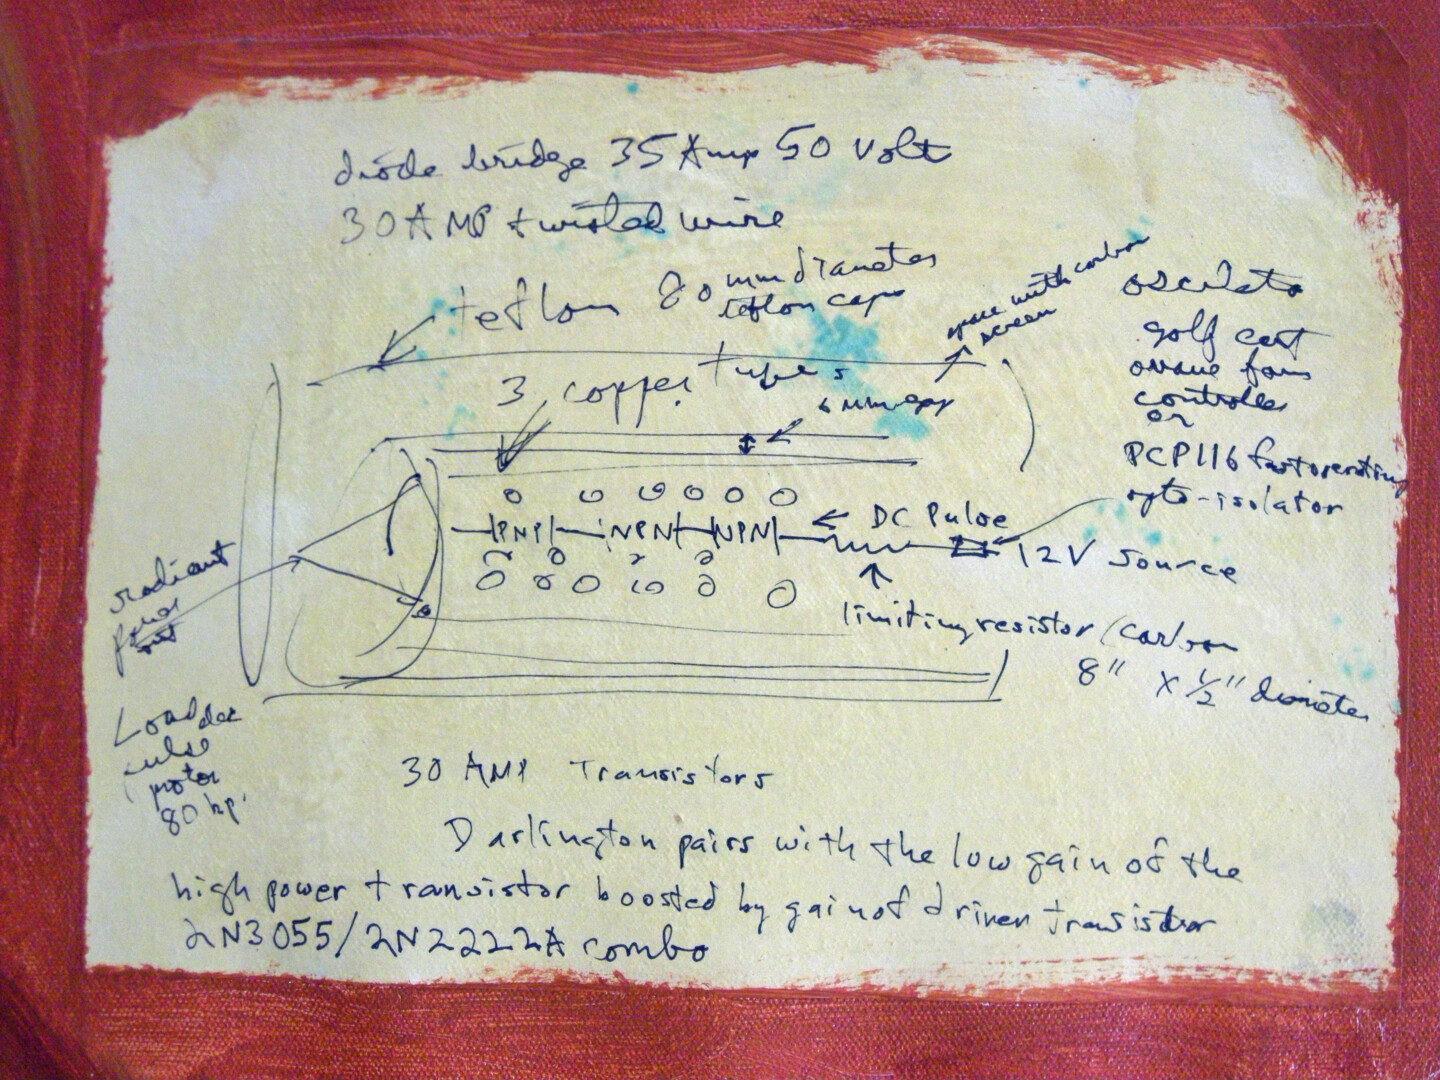 diode bridge 35 Amp 50 Volt
30 AMP twisted wire
teflon 80 mm diameter
teflon caps
space with carbon
screen
3 copper tubes
6 mm gap
oscilato
golf cart
controller
or
PCP116 fast operating
opto-isolator
PNP NPN NPN
DC Pulse
12V source
limiting resistor/carbon
8" x 1/2" diameter
radiant
out
Load dc
pulse
motor
80 hp.
30 AMP Transistors
Darlington pairs with the low gain of the
high power transistor boosted by gain of driven transistor
2N3055/2N2222A combo